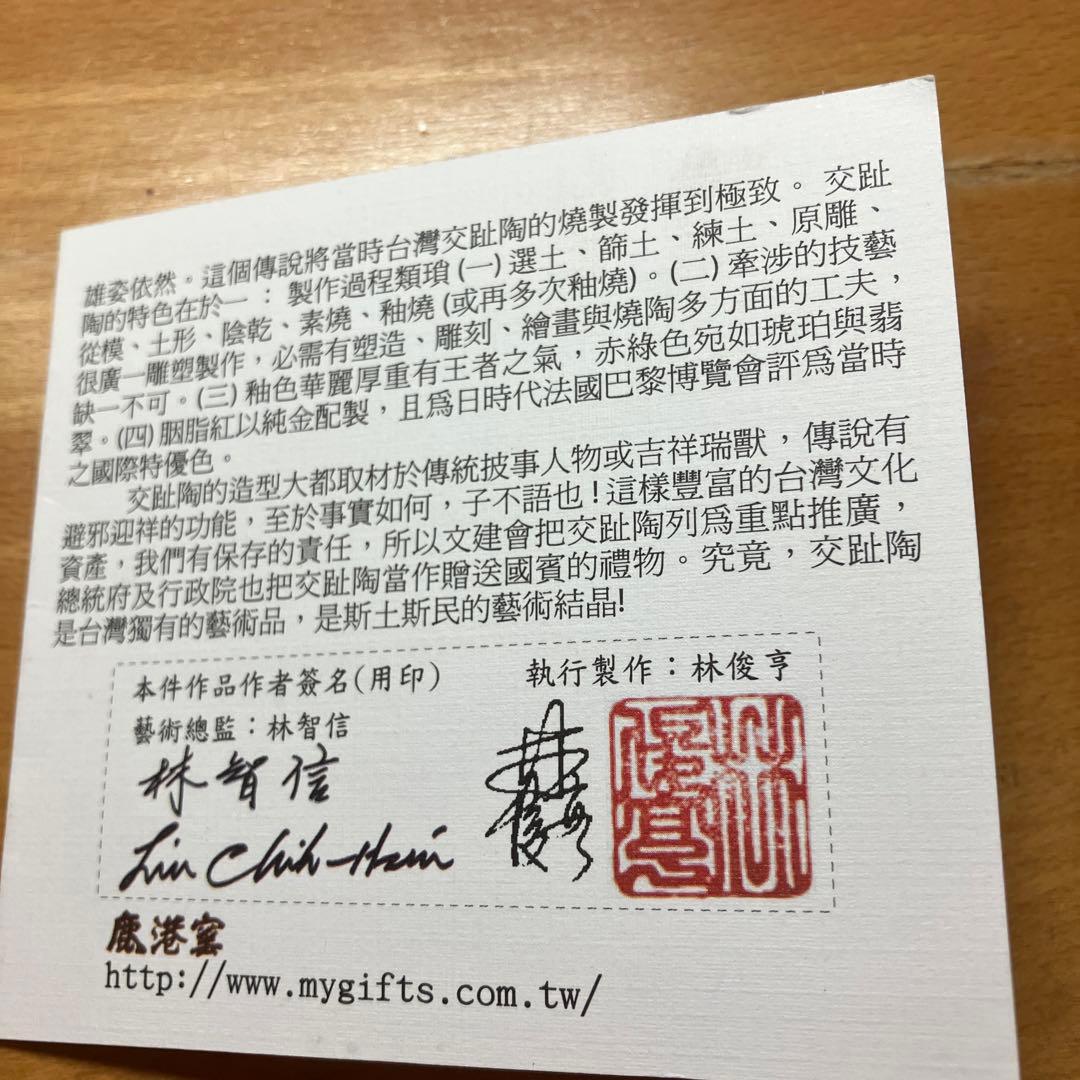 雄姿依然。這個傳說將當時台灣交趾陶的燒製發揮到極致。 交趾
陶的特色在於一 ： 製作過程類瑣 (一) 選土、篩土、練土、原雕、
從模、土形、陰乾、素燒、釉燒 (或再多次釉燒)。(二) 牽涉的技藝
很廣一雕塑製作，必需有塑造、雕刻、繪畫與燒陶多方面的工夫，
缺一不可。(三) 釉色華麗厚重有王者之氣，赤綠色宛如琥珀與翡
翠。(四) 胭脂紅以純金配製，且爲日時代法國巴黎博覽會評爲當時
之國際特優色。
交趾陶的造型大都取材於傳統披事人物或吉祥瑞獸，傳說有
避邪迎祥的功能，至於事實如何，子不語也！這樣豐富的台灣文化
資產，我們有保存的責任，所以文建會把交趾陶列爲重點推廣，
總統府及行政院也把交趾陶當作贈送國賓的禮物。究竟，交趾陶
是台灣獨有的藝術品，是斯土斯民的藝術結晶!
本件作品作者簽名(用印)
執行製作：林俊亨
藝術總監：林智信
林智信
Lin Chih-Hsin
林俊亨
林俊亨
鹿港窯
http://www.mygifts.com.tw/